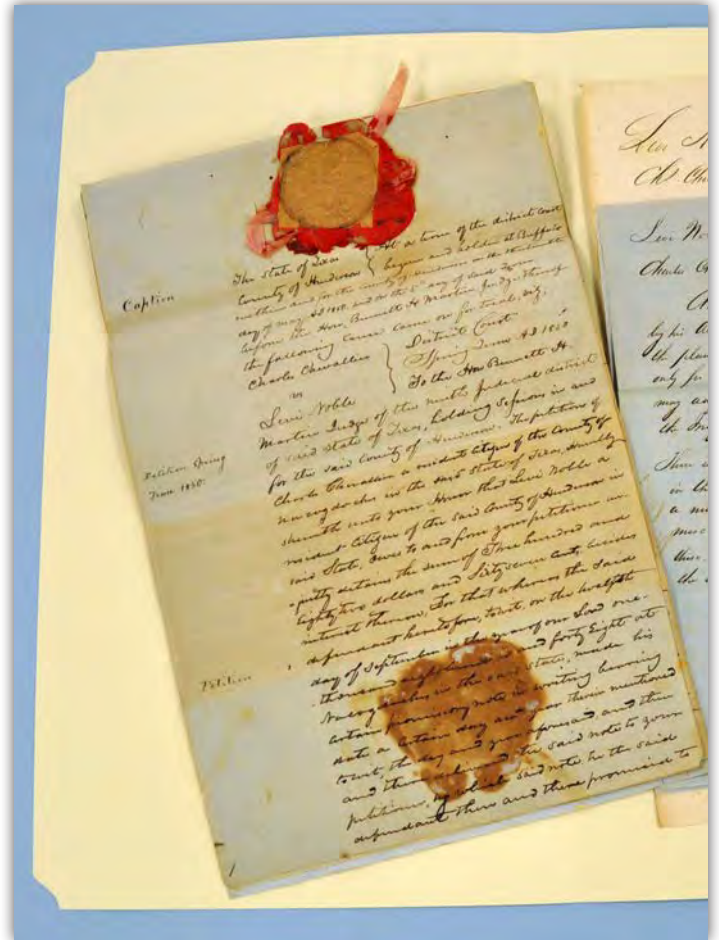 Caption
The State of Texas } At a term of the district Court
County of Henderson } begun and holden at Buffalo
within and for the County of Henderson on the
day of May AD 1850 and on the day of said Term
before the Hon. Bennett H. Martin Judge thereof
the following cause came on for trial, viz;
Charles Chevallier } District Court
vs } Spring Term AD 1850
Levi Noble } To the Hon Bennett H.
Martin Judge of the ninth Judicial district
of said State of Texas, holding Sessions in and
for the said County of Henderson. The petition of
Petition Spring
Term 1850
Charles Chevallier a resident Citizen of the County of
Nacogdoches in the said State of Texas, Humbly
sheweth unto your Honor that Levi Noble a
resident Citizen of the said County of Henderson in
said State, owes to and from your petitioner un-
justly detains the sum of Three hundred and
Eighty two dollars and Sixty seven Cents, besides
interest thereon, For that whereas the said
defendant heretofore, to wit, on the twelfth
Petition
day of September in the year of our Lord one-
thousand eight hundred and forty Eight at
Nacogdoches in the said State, made his
certain promissory note in writing bearing
date a certain day and year therein mentioned
to wit, the day and year aforesaid, and then
and there delivered the said note to your
petitioner, by which said note he the said
defendant then and there promised to
1
Levi N
Ch Che
Levi No
Charles C
by his a
the plain
only for
may
the
There
in th
a